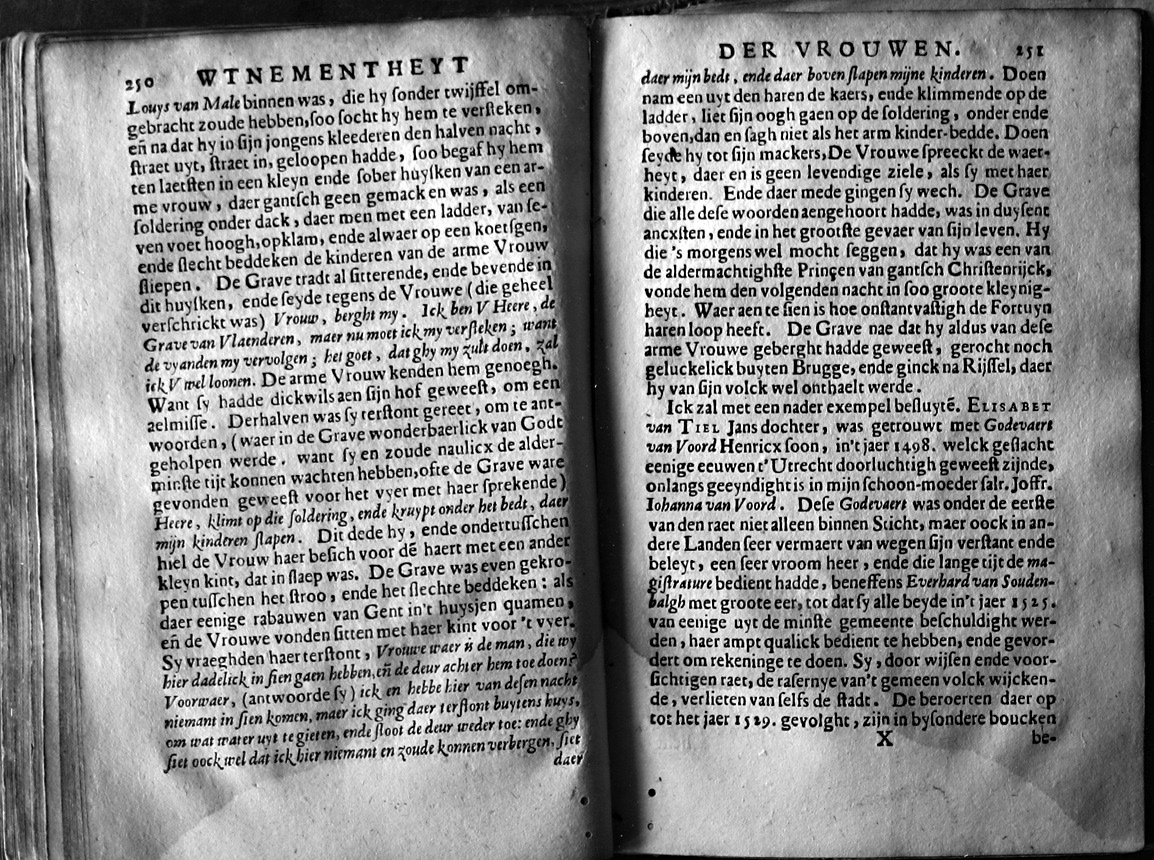 250 WTNEMENTHEYT
Louys van Male binnen was, die hy ſonder twijffel om-
gebracht zoude hebben, ſoo ſocht hy hem te verſteken,
eñ na dat hy in ſijn jongens kleederen den halven nacht,
ſtraet uyt, ſtraet in, geloopen hadde, ſoo begaf hy hem
ten laetſten in een kleyn ende ſober huyſken van een ar-
me vrouw, daer gantſch geen gemack en was, als een
ſoldering onder dack, daer men met een ladder, van ſe-
ven voet hoogh, opklam, ende alwaer op een koetſgen,
ende ſlecht beddeken de kinderen van de arme Vrouw
ſliepen. De Grave tradt al ſitterende, ende bevende in
dit huyſken, ende ſeyde tegens de Vrouwe (die geheel
verſchrickt was) Vrouw, berght my. Ick ben V Heere, de
Grave van Vlaenderen, maer nu moet ick my verſteken; want
de vyanden my vervolgen; het goet, dat ghy my zult doen, zal
ick V wel loonen. De arme Vrouw kenden hem genoegh.
Want ſy hadde dickwils aen ſijn hof geweeſt, om een
aelmiſſe. Derhalven was ſy terſtont gereet, om te ant-
woorden, (waer in de Grave wonderbaerlick van Godt
geholpen werde. want ſy en zoude naulicx de alder-
minſte tijt konnen wachten hebben, ofte de Grave ware
gevonden geweeſt voor het vyer met haer ſprekende)
Heere, klimt op die ſoldering, ende kruypt onder het bedt, daer
mijn kinderen ſlapen. Dit dede hy, ende ondertuſſchen
hiel de Vrouw haer beſich voor dē haert met een ander
kleyn kint, dat in ſlaep was. De Grave was even gekro-
pen tuſſchen het ſtroo, ende het ſlechte beddeken: als
daer eenige rabauwen van Gent in't huysjen quamen,
eñ de Vrouwe vonden ſitten met haer kint voor 't vyer.
Sy vraeghden haer terſtont, Vrouwe waer is de man, die wy
hier dadelick in ſien gaen hebben, eñ de deur achter hem toe doen?
Voorwaer, (antwoorde ſy) ick en hebbe hier van deſen nacht
niemant in ſien komen, maer ick ging daer terſtont buytens huys,
om wat water uyt te gieten, ende ſloot de deur weder toe: ende ghy
ſiet oock wel dat ick hier niemant en zoude konnen verbergen, ſiet
daer
DER VROUWEN. 251
daer mijn bedt, ende daer boven ſlapen mijne kinderen. Doen
nam een uyt den haren de kaers, ende klimmende op de
ladder, liet ſijn oogh gaen op de ſoldering, onder ende
boven, dan en ſagh niet als het arm kinder-bedde. Doen
ſeyde hy tot ſijn mackers, De Vrouwe ſpreeckt de waer-
heyt, daer en is geen levendige ziele, als ſy met haer
kinderen. Ende daer mede gingen ſy wech. De Grave
die alle deſe woorden aengehoort hadde, was in duyſent
ancxſten, ende in het grootſte gevaer van ſijn leven. Hy
die 's morgens wel mocht ſeggen, dat hy was een van
de aldermachtighſte Prinçen van gantſch Chriſtenrijck,
vonde hem den volgenden nacht in ſoo groote kleynig-
heyt. Waer aen te ſien is hoe onſtantvaſtigh de Fortuyn
haren loop heeft. De Grave nae dat hy aldus van deſe
arme Vrouwe geberght hadde geweeſt, gerocht noch
geluckelick buyten Brugge, ende ginck na Rijſſel, daer
hy van ſijn volck wel onthaelt werde.
Ick zal met een nader exempel beſluytē. ELISABET
van TIEL Jans dochter, was getrouwt met Godevaert
van Voord Henricx ſoon, in't jaer 1498. welck geſlacht
eenige eeuwen t'Utrecht doorluchtigh geweeſt zijnde,
onlangs geeyndight is in mijn ſchoon-moeder ſalr. Joffr.
Iohanna van Voord. Deſe Godevaert was onder de eerſte
van den raet niet alleen binnen Sticht, maer oock in an-
dere Landen ſeer vermaert van wegen ſijn verſtant ende
beleyt, een ſeer vroom heer, ende die lange tijt de ma-
giſtrature bedient hadde, beneffens Everhard van Souden-
balgh met groote eer, tot dat ſy alle beyde in't jaer 1525.
van eenige uyt de minſte gemeente beſchuldight wer-
den, haer ampt qualick bedient te hebben, ende gevor-
dert om rekeninge te doen. Sy, door wijſen ende voor-
ſichtigen raet, de raſernye van't gemeen volck wijcken-
de, verlieten van ſelfs de ſtadt. De beroerten daer op
tot het jaer 1529. gevolght, zijn in byſondere boucken
X be-